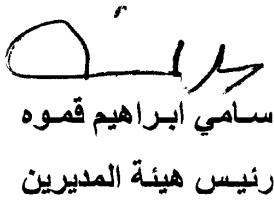 سامي ابراهيم قموه
رئيس هيئة المديرين